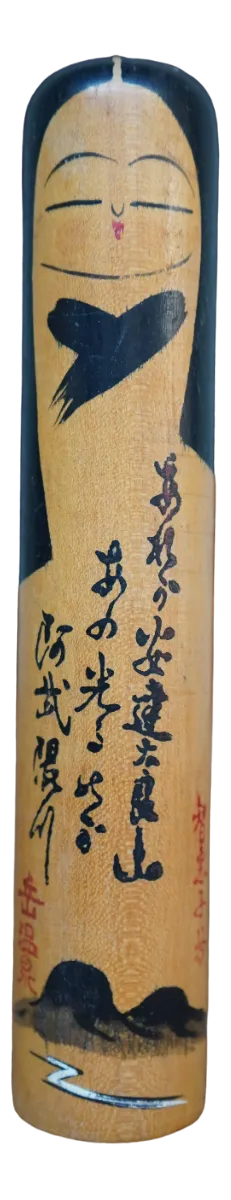 あれが安達太良山
あの光るのが
阿武隈川
岳温泉